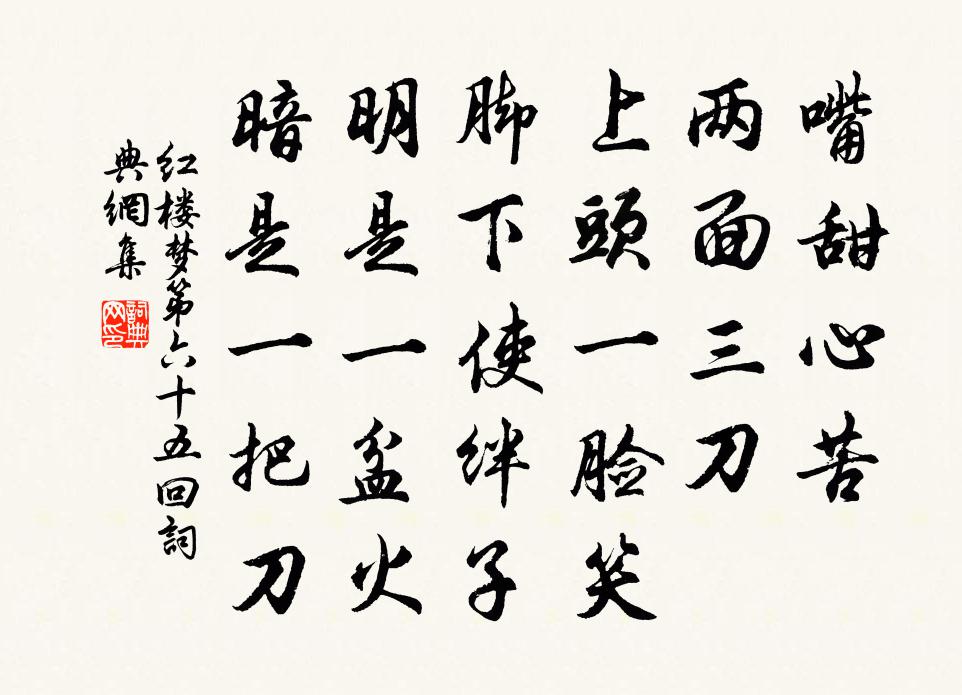 嘴甜心苦
两面三刀
上頭一脸笑
脚下使绊子
明是一盆火
暗是一把刀
红楼梦第六十五回詞
典網集
詞典
网印